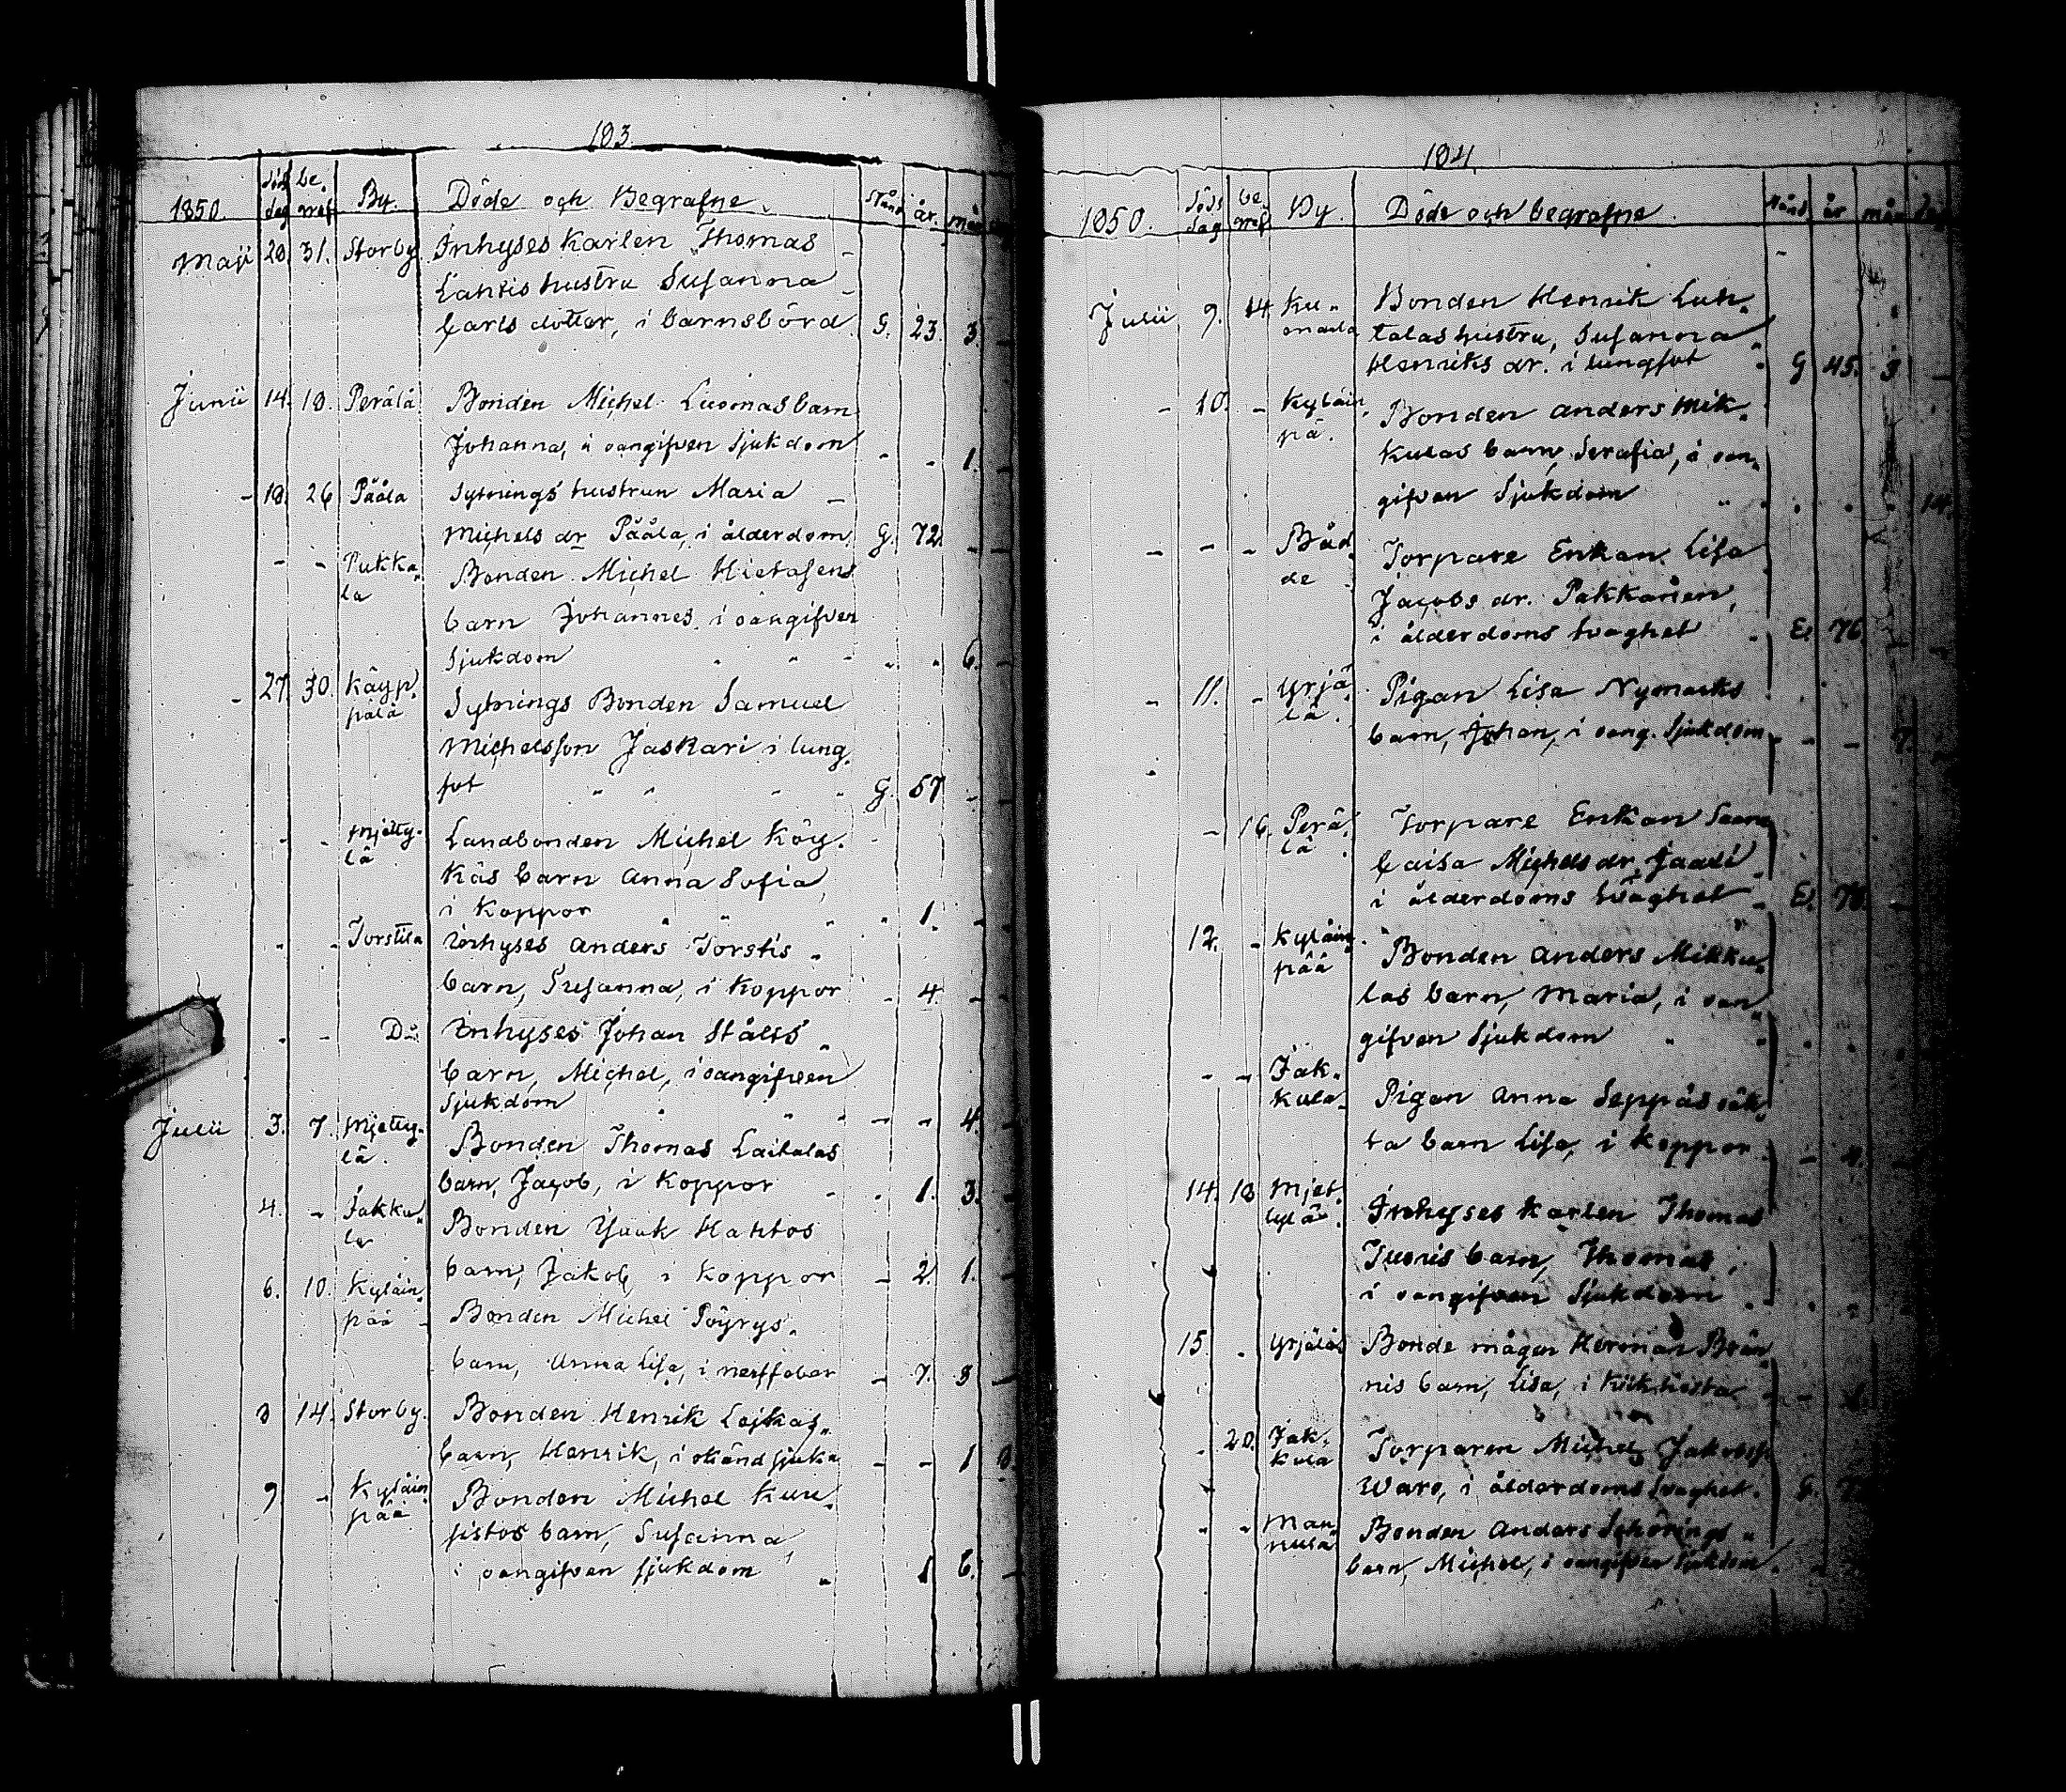 103.
1850. död dag be. graf By. Döde och Begrafne. Stånd år. mån
Maji 28. 31. Storby Inhyses Karlen Thomas
Lahtis hustru Susanna
Carls dotter, i barnsbörd. G. 23. 3. -
Junii 14. 18. Perälä Bonden Michel Luomas barn
Johanna, i oangifven Sjukdom - - 1. -
- 18. 26 Pääla Sytnings hustrun Maria
Michels dr Pääla, i ålderdom G. 72. - -
- - Pukka Bonden Michel Hietasens
la barn Johannes, i oangifven
Sjukdom " " 6. -
- 27. 30. Käyp Sytnings Bonden Samuel
pälä Michelsson Jaskari i lung
sot " " " " G. 57 - -
- - Mjetty- Landbonden Michel Köy-
lä Käs barn Anna Sofia,
i Koppor " " " " 1. -
- - Torstila Inhyses Anders Torstis
barn, Susanna, i Koppor - 4. - -
- - Do Inhyses Johan Ståls
barn, Michel, i oangifven
Sjukdom " " " - - 4.
Julii 3. 7. Mjetty- Bonden Thomas Laitalas
lä. barn, Jacob, i Koppor - - 1. 3. -
4. - Jakku Bonden Isaak Hahtos
la barn, Jakob, i Koppor - 2. 1. -
6. 10. Kyläin Bonden Michel Pöyrys
pää barn, Anna Lisa, i - 7. 3 -
14. Storby. Bonden Henrik Lojkas
barn, Henrik, i okänd sjuka - - 1
9. - Kyläin Bonden Michel Kuu-
pää sistos barn, Susanna,
i oangifven sjukdom " 1 6. -
104
1850. döds dag be graf By. Döde och begrafne. Stånd. år mån
Julii 9. 14 Ku- Bonden Henrik Luh-
talas hustru, Susanna
Henriks dr. i lungsot G 45. 3 -
- 10. - Kyläin Bonden Anders Mik
pä. kulas barn, Serafia, i oan-
gifven Sjukdom " - - - 14.
- - - Båd Torpare Enkan Lisa
de Jacobs dr. Pakkanen,
i ålderdoms svaghet E. 76 -
- 11. - Yrjä Pigan Lisa Nymarks
lä. barn, Johan, i oang. Sjukdom - - 7. -
- 16. Perä Torpare Enkan
lä Caisa Michels dr Jaadi
i ålderdoms Svaghet E. 78. -
12. - Kyläin Bonden Anders Mikku
pää las barn, Maria, i oan
gifven Sjukdom " "
- - Jak- Pigan Anna Seppäs oäk
kula ta barn Lisa, i Koppor - 4. -
14. 18 Mjet Inhyses Karlen Thomas
tylä barn, Thomas,
i oangifven Sjukdom
15. - Yrjälä Bonde mågen Herman Brän
nis barn, Lisa, i Kikhosta
- 20. Jak- Torparen Michel Jakobss
kula Waro, i ålderdoms Svaghet. G.
- - Man Bonden Anders
nula barn, Michel, i oangifven Sjukdom